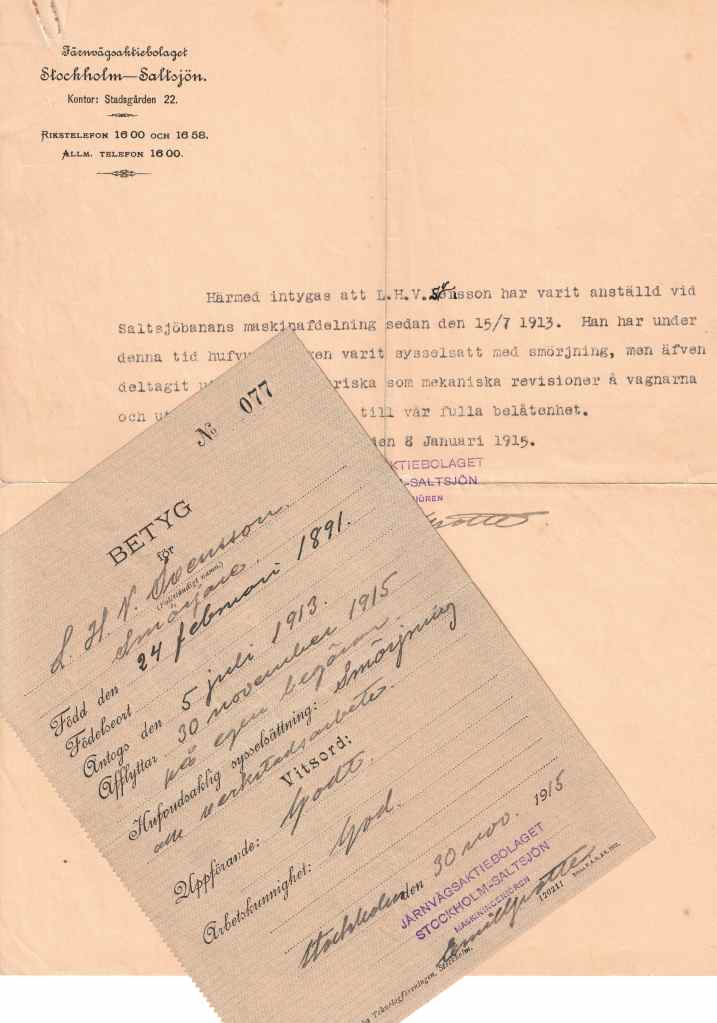 Järnvägsaktiebolaget
Stockholm—Saltsjön.
Kontor: Stadsgården 22.
RIKSTELEFON 16 00 OCH 16 58.
ALLM. TELEFON 16 00.
Härmed intygas att L.H.V. Svensson har varit anställd vid
Saltsjöbanans maskinafdelning sedan den 15/7 1913. Han har under
denna tid hufvu en varit sysselsatt med smörjning, men äfven
deltagit u riska som mekaniska revisioner å vagnarna
och ut till vår fulla belåtenhet.
den 8 Januari 1915.
KTIEBOLAGET
-SALTSJÖN
IÖREN
No 077
BETYG
för
L. H. V. Svensson.
(Fullständigt namn.)
Smörjare.
Född den 24 februari 1891.
Födelseort
Antogs den 5 juli 1913.
Afflyttar 30 november 1915
på egen begäran.
Hufvudsaklig sysselsättning: Smörjning
och verkstadsarbete.
Vitsord:
Uppförande: Godt.
Arbetskunnighet: God.
Stockholm den 30 nov. 1915
JÄRNVÄGSAKTIEBOLAGET
STOCKHOLM-SALTSJÖN
MASKININGENIÖREN
(2021)
Teknologföreningen, Stockholm.